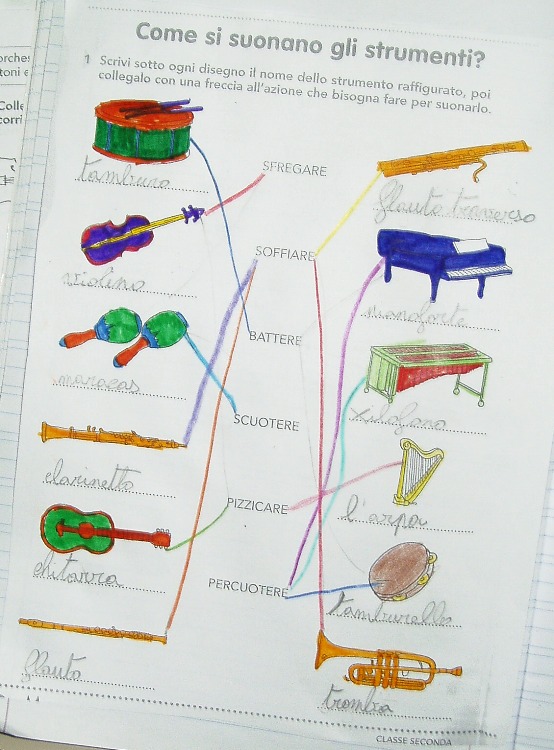 Come si suonano gli strumenti?
1 Scrivi sotto ogni disegno il nome dello strumento raffigurato, poi
collegalo con una freccia all'azione che bisogna fare per suonarlo.
tamburo
violino
maracas
clarinetto
chitarra
flauto
SFREGARE
SOFFIARE
BATTERE
SCUOTERE
PIZZICARE
PERCUOTERE
flauto traverso
pianoforte
xilofono
l'arpa
tamburello
tromba
CLASSE SECONDA